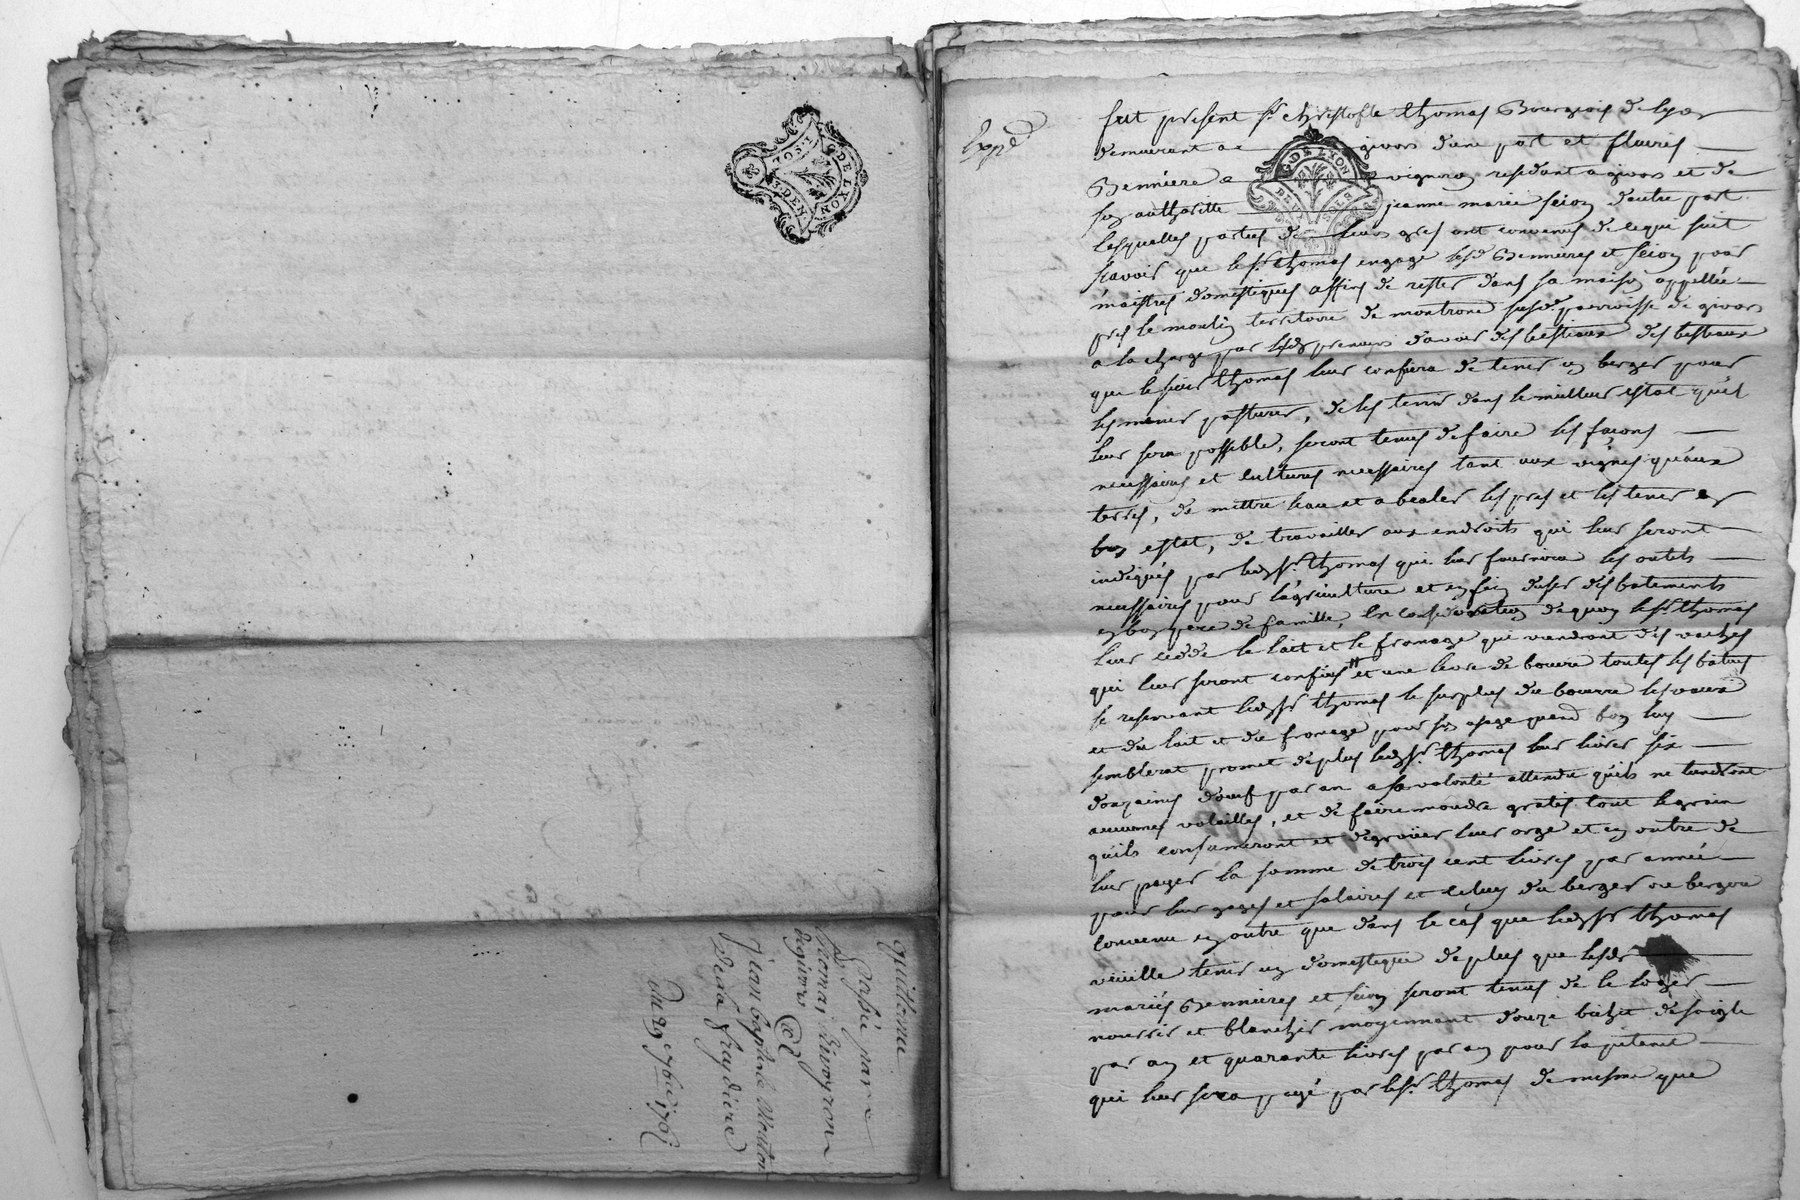 G. DE LYON
3. DEN.
quittance
passée par
Thomas
de givors
@
Jean baptiste
de la fraydiere
Du 29 7bre 1761
Expé
fut present sr. christofle thomas Bourgeois de lyon
demeurant a givors d'une part et fleuris
Bennière vigneron residant a givors et de
son authoritte jeanne marie seion d'autre part
lesquelles parties de leurs gres ont convenus de ce qui suit
scavoir que le sr. thomas engage lesd. Bennieres et seion pour
maistres domestiques affins de rester dans sa maison appellée
pres le moulin territoire de montrond susd. parroisse de givors
a la charge par lesds preneurs d'avoir des bestiaux des bestiaux
que le sieur thomas leur confiera de tenir un berger pour
les mener pasturer, de les tenir dans le meilleur estat qu'il
leur sera possible, seront tenus de faire les façons
necessaires et cultures necessaires tant aux vignes qu'aux
terres, de mettre l'eau et a bealer les pres et les tenir en
bon estat, de travailler aux endroits qui leur seront
indiqués par ledt sr. thomas qui leur fournira les outils
necessaires pour l'agriculture et enfin d'user des batiments
en bon pere de famille, en consideration de quoy le sr. thomas
leur cedde le lait et le fromage qui viendront des vaches
qui leur seront confiés et une livre de beurre toutes les batues
se reservant ledt sr. thomas le surplus du beurre les veaux
et du lait et du fromage pour son usage quand bon luy
semblerat promet de plus ledt sr. thomas leur livrer six
douzaines d'oeuf par an a sa volonté attendu qu'ils ne tiendront
aucunes volailles, et de faire moudre gratis tout le grain
qu'ils consumeront et degruer leur orge et en outre de
leur payer la somme de trois cent livres par année
pour leur gages et salaires et celuy du berger ou bergere
convenu en outre que dans le cas que ledt sr. thomas
veuille tenir un domestique de plus que lesds
mariés Bennieres et seion seront tenus de le loger
nourrir et blanchir moyennant douze bichet de soigle
par an et quarante livres par an pour la pitance
qui leur sera payé par le sr. thomas de mesme que